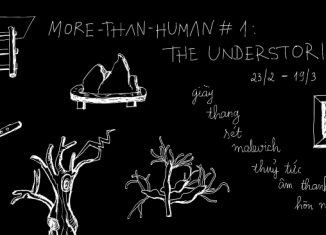 MORE-THAN-HUMAN #1:
THE UNDERSTORI
23/2 - 19/3
giày
thang
sét
malevich
thuỷ tức
âm thanh
hòn n